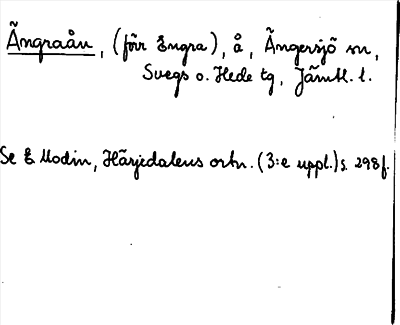 Ängraån, (förr Engra), å, Ängersjö sn,
Svegs o. Hede tg, Jämtl. l.
Se E Modin, Härjedalens ortn. (3:e uppl.) s. 298f.